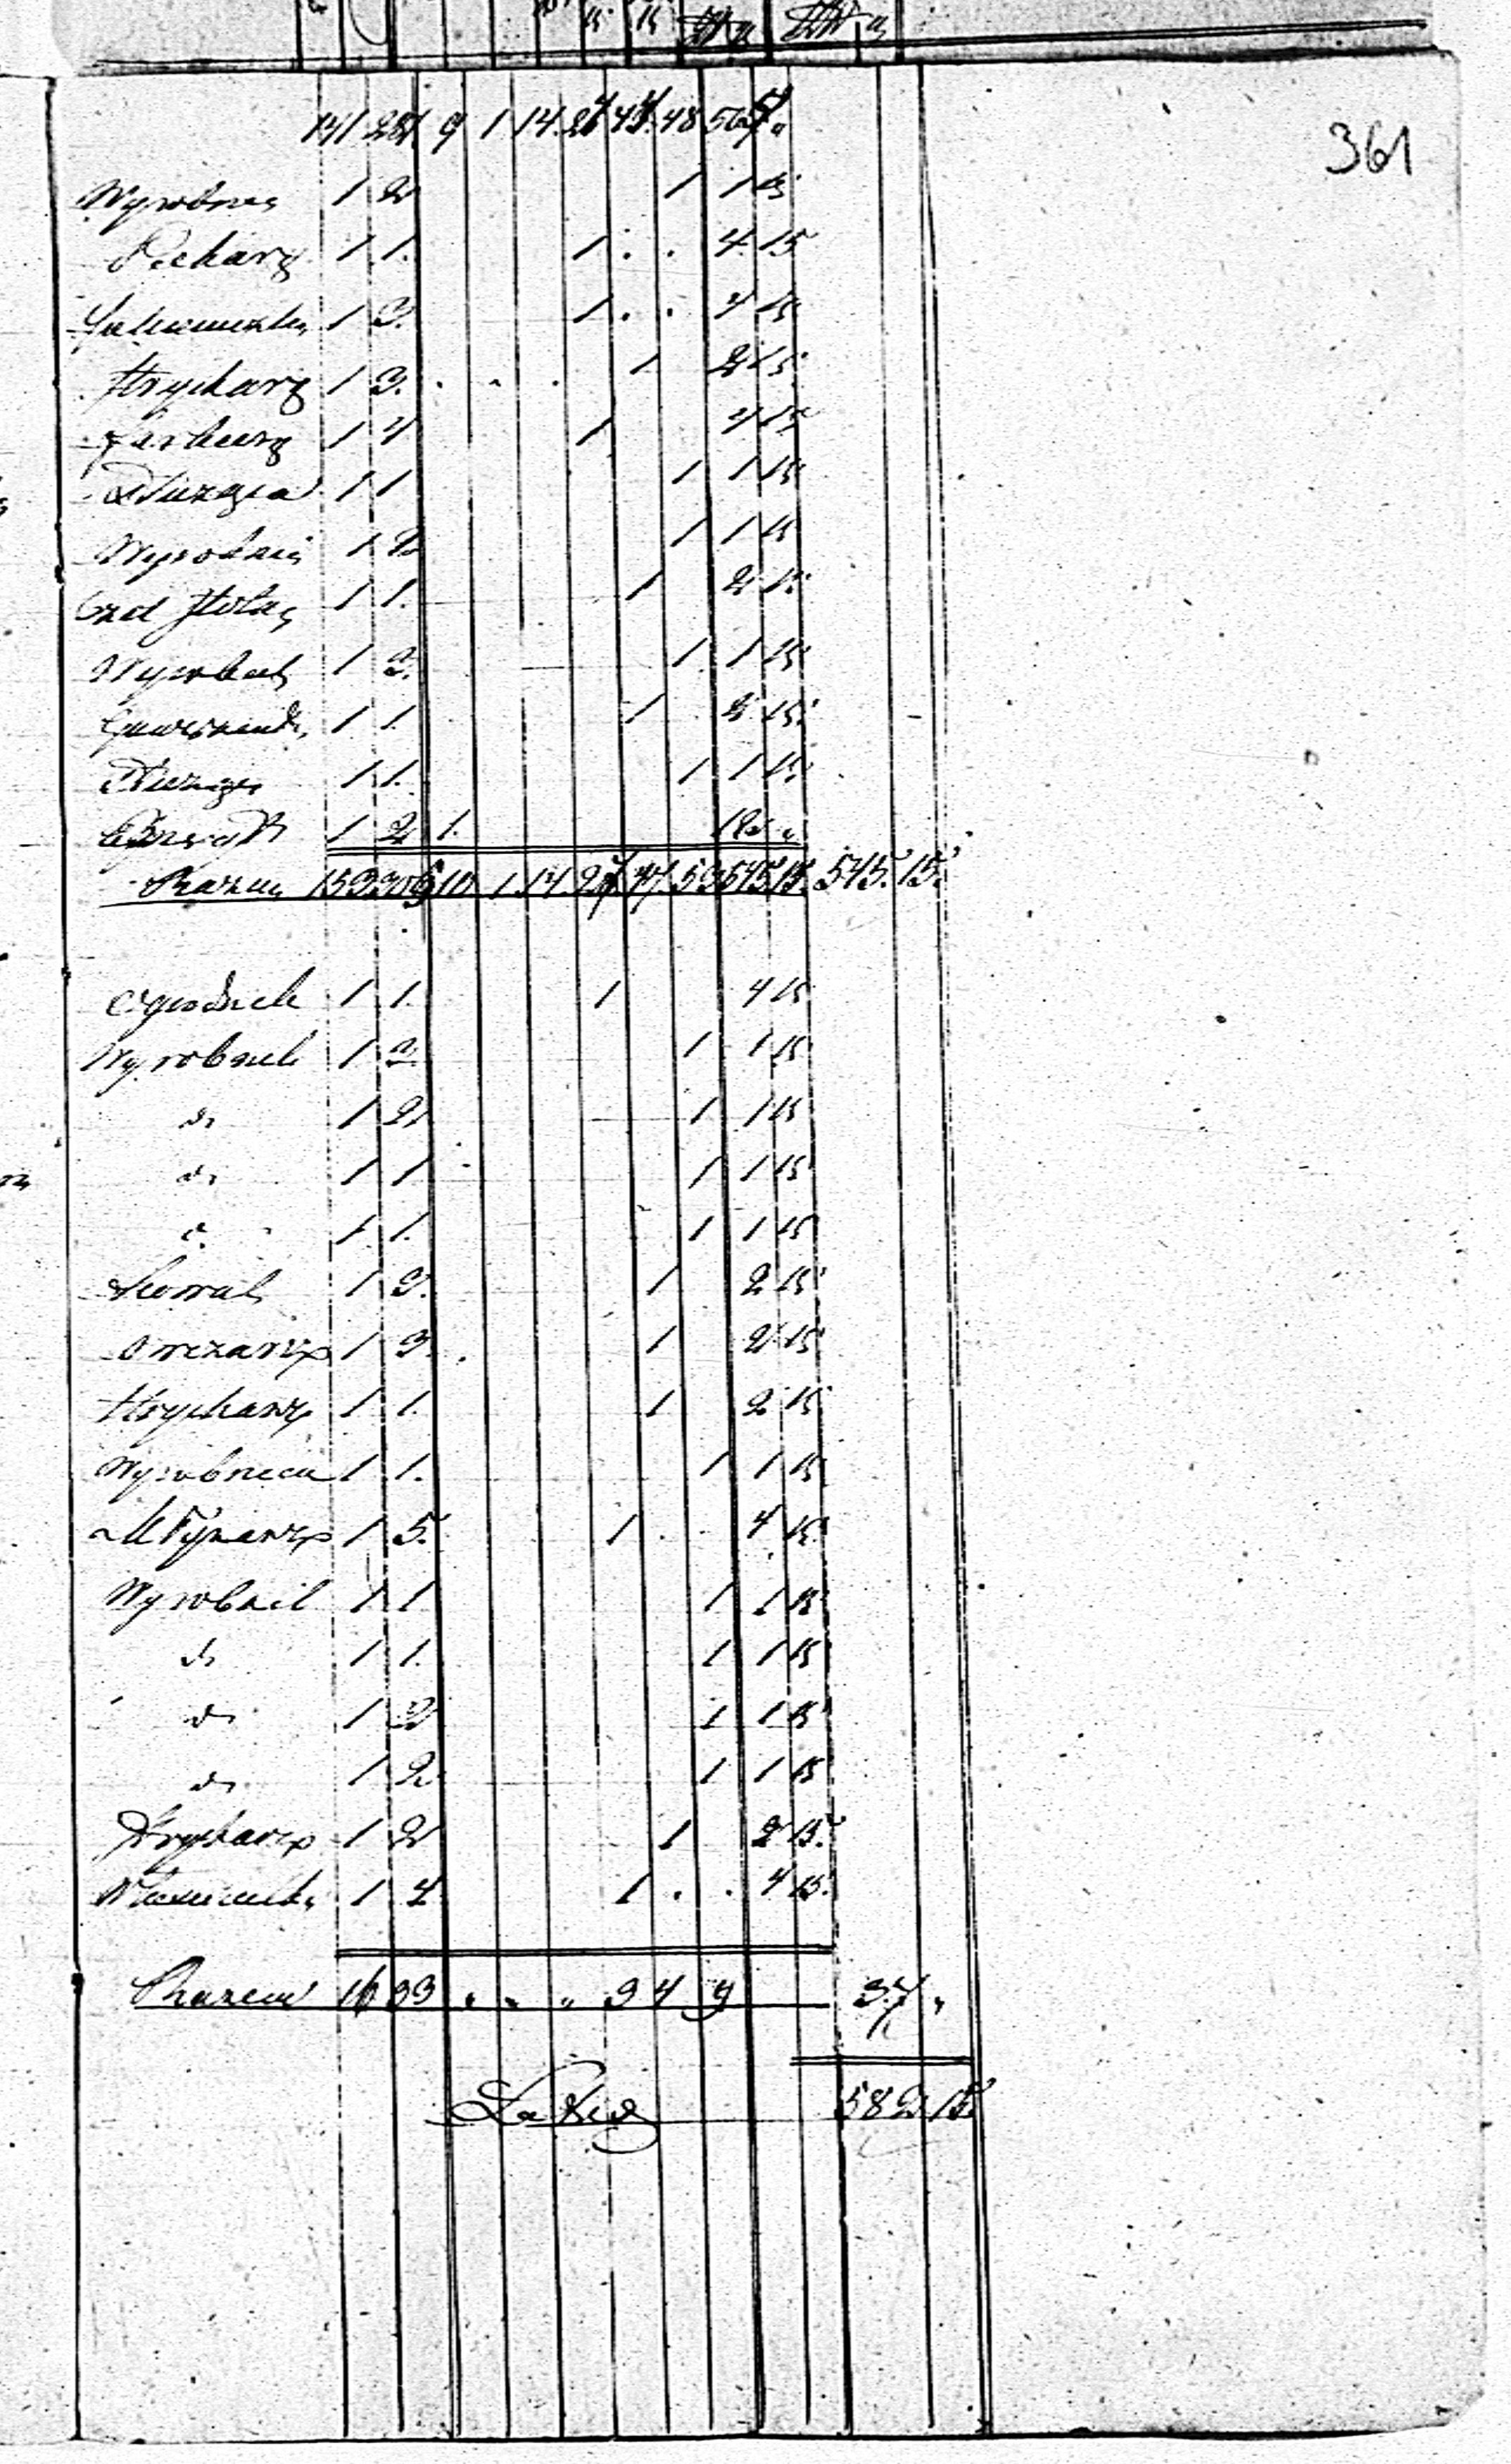 361
141 281 9 1 14 48
Wyrobnik 1 2 1 1 15
Piekarz 1 1. 1 . . 4 15
1 3. 1 . . 4 15
Strycharz 1 3. . . . 1 2 15
1 4 1 4 15
Służąca 1 1 1 1 15
1 2 1 1 15
1 1. 1 2 15
1 2. 1 1 15
1 1. 1 2 15
1 1. 1 1 15
1 2 1. 18 "
Razem 153 306 10 1 14 27 47 53 545 15. 545. 15.
Ogrodnik 1 1. 1 4 15
Wyrobnik 1 2. 1 1 15
d 1 2 1 1 15
d 1 1 1 1 15
d 1 1. 1 1 15
Kowal 1 3. 1 2 15
Owczarz 1 3. 1 2 15
Strycharz 1 1. 1 2 15
Wyrobnica 1 1. 1 1 15
Młynarz 1 5. 1 . . 4 15
Wyrobnik 1 1 1 1 15
d 1 1. 1 1 15
d 1 2 1 1 15
d 1 2 1 1 15
Strycharz 1 2 1 2 15.
1 4 1 . . 4 15.
Razem 16 33 " " " 3 4 9 37 "
582 15